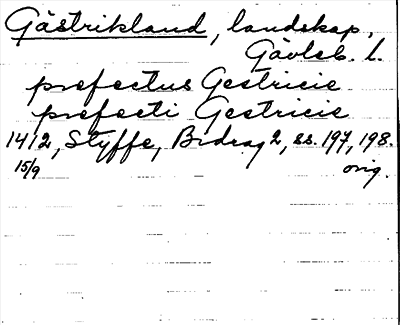 Gästrikland, landskap,
Gävleb. l.
prefectus Gestricie
prefecti Gestricie
1412, Styffe, Bidrag 2, ss. 197, 198.
15/9 orig.